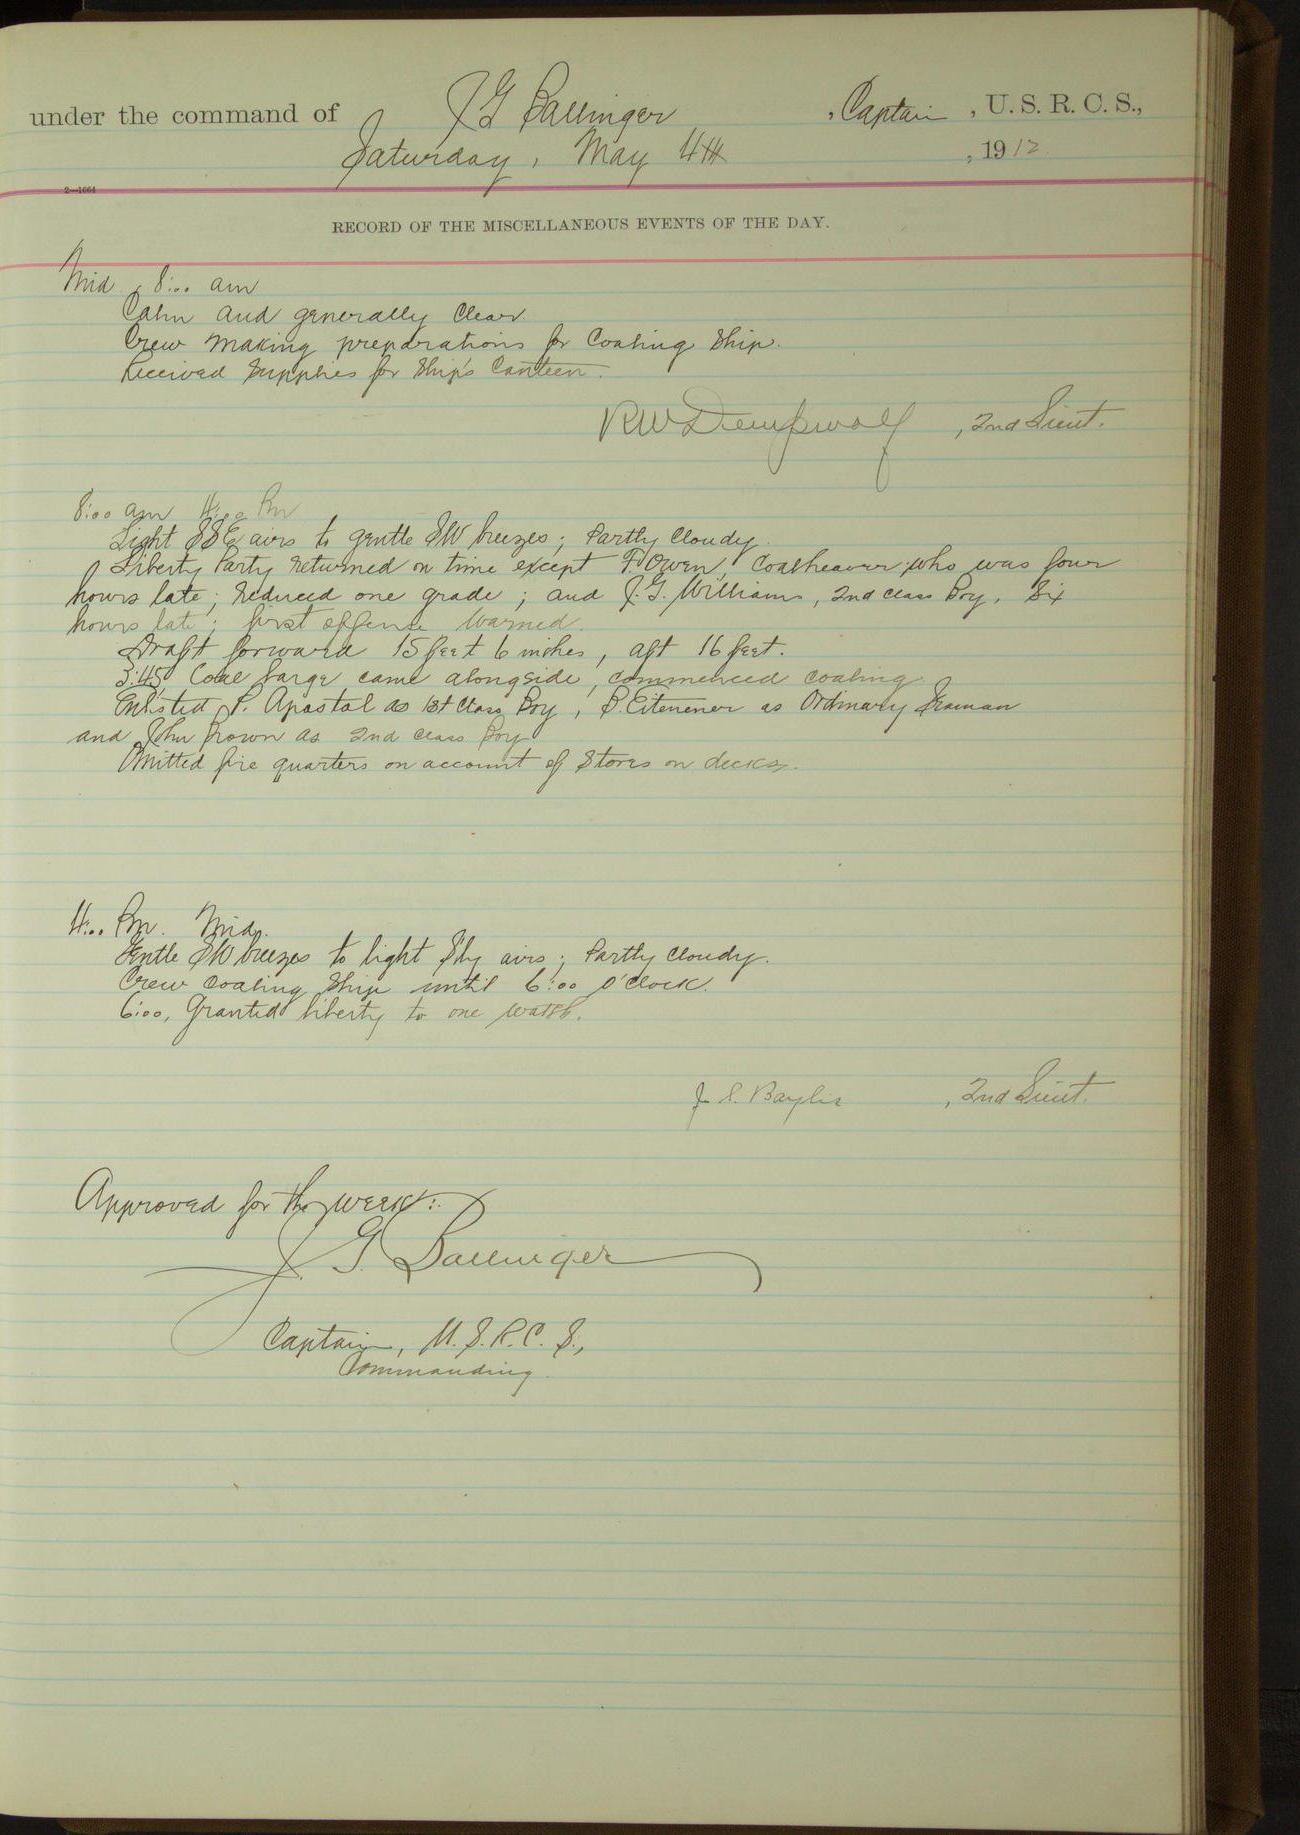 under the command of J G Ballinger, Captain, U. S. R. C. S.,
Saturday, May 4th, 1912
2—1664
RECORD OF THE MISCELLANEOUS EVENTS OF THE DAY.
Mid 8:00 am
Calm and generally clear.
Crew making preparations for Coaling Ship.
Received Supplies for Ship's Canteen.
RW Dempwolf, 2nd Lieut.
8:00 am 4:00 Pm
Light SSE airs to gentle SW breezes; Partly Cloudy.
Liberty Party returned on time except F Owen, Coalheaver who was four
hours late; reduced one grade; and J. G. Williams, 2nd class Boy, Six
hours late; first offense warned.
Draft forward 15 feet 6 inches, aft 16 feet.
3:45 Coal barge came alongside, commenced coaling.
Enlisted P. Apostal as 1st Class Boy, B. as Ordinary Seaman
and John Brown as 2nd class Boy
Omitted fire quarters on account of Stores on decks.
4:00 Pm. Mid.
Gentle SW breezes to light S'ly airs; Partly Cloudy.
Crew Coaling Ship until 6:00 o'clock.
6:00, Granted liberty to one watch.
J. S. Baylis, 2nd Lieut.
Approved for the week:
J. G. Ballinger
Captain, U. S. R. C. S.,
Commanding.